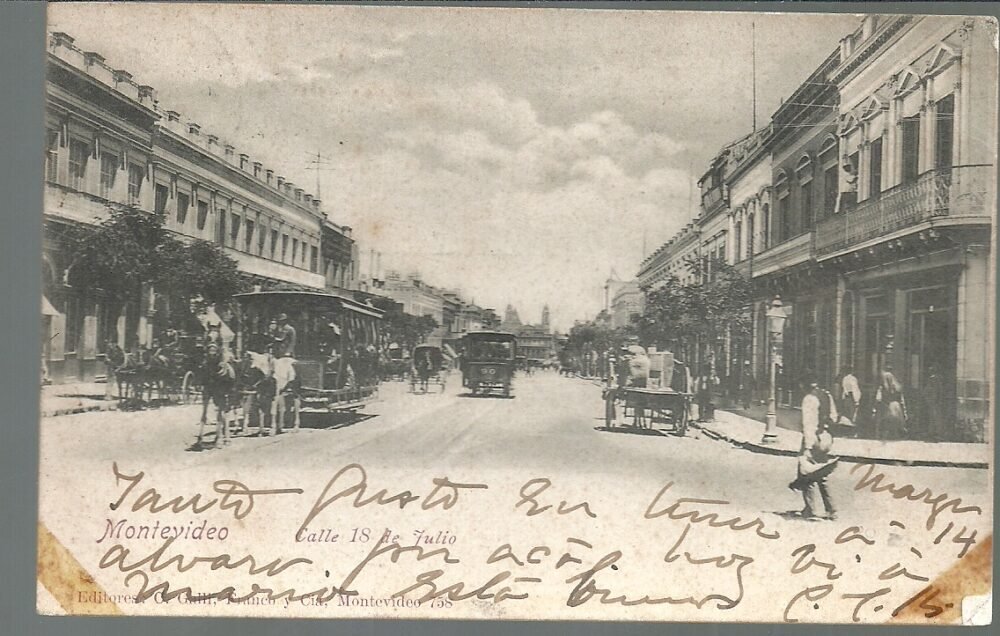 Tanto gusto en tener à
Marzo 14
Montevideo Calle 18 de Julio
alvaro por acá hoy vi à
Mario está bueno
Editores: C. Galli, Franco y Cia, Montevideo 758